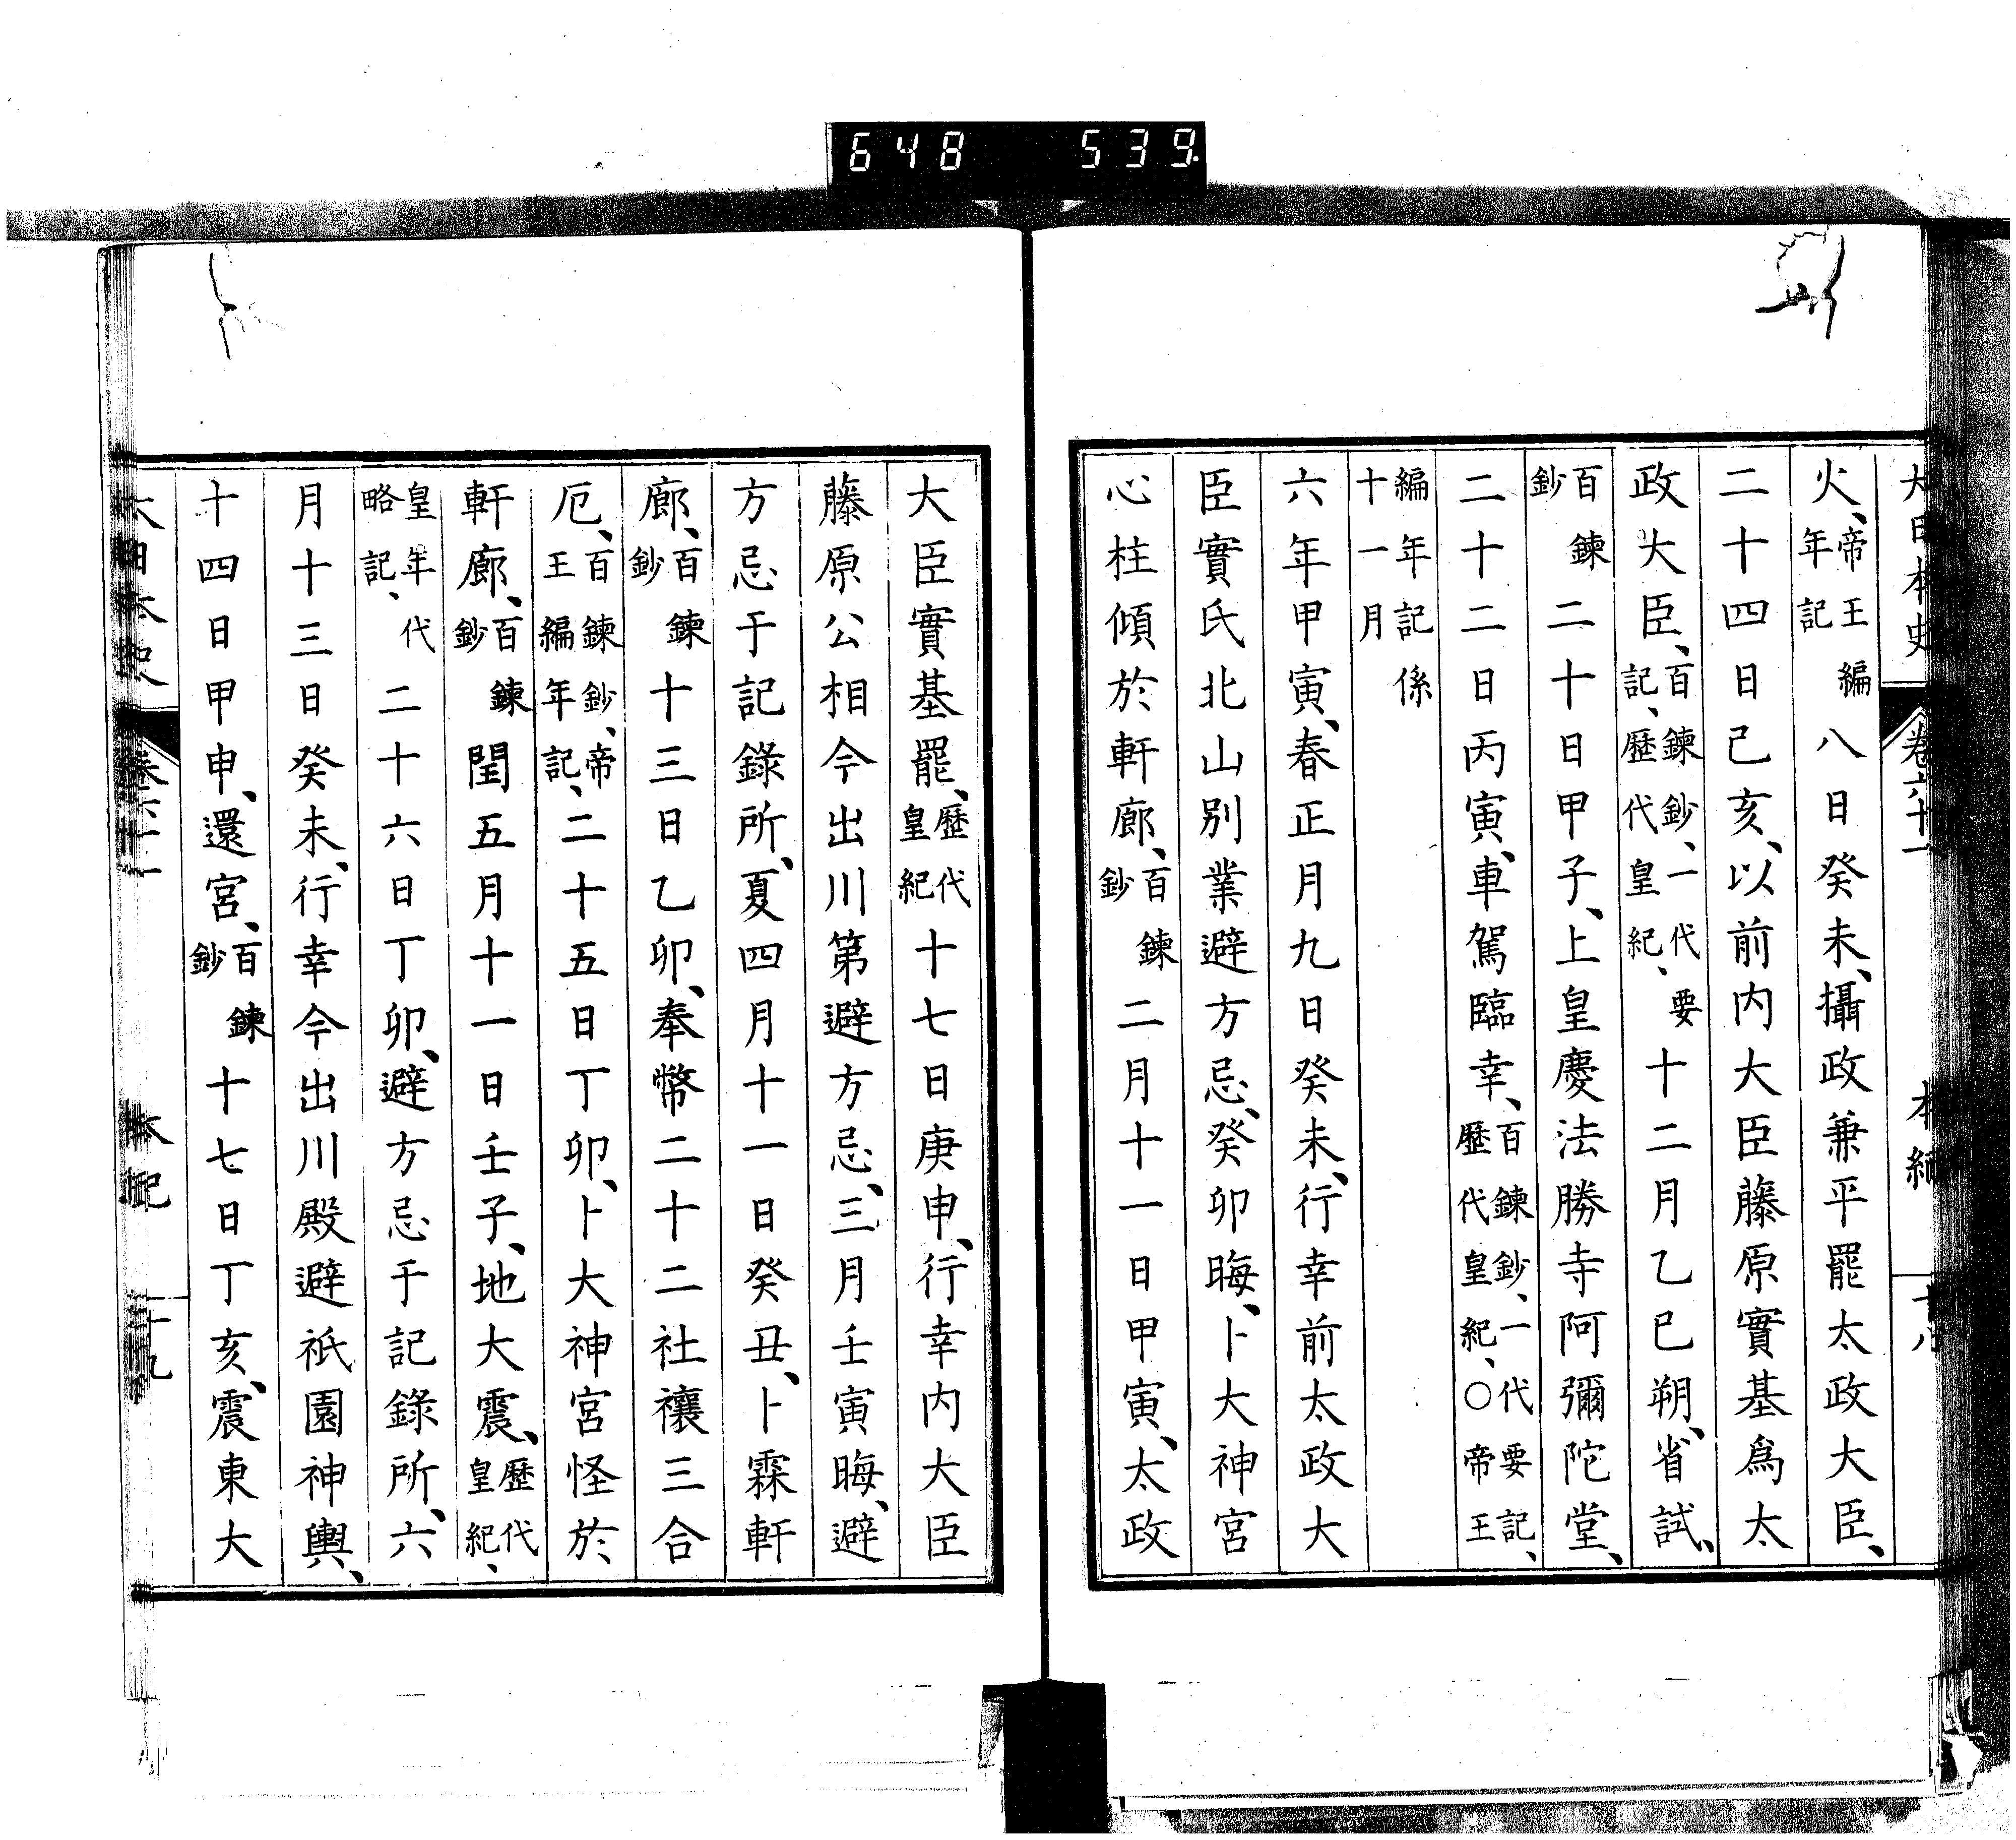 648 539.
大日本史 卷六十一 本紀 十八
火、帝王編年記八日癸未、攝政兼平罷太政大臣、
二十四日己亥、以前内大臣藤原實基爲太
政大臣、百鍊鈔、一代要記、歷代皇紀、十二月乙巳朔、省試、
百鍊鈔二十日甲子、上皇慶法勝寺阿彌陀堂、
二十二日丙寅、車駕臨幸、百鍊鈔、一代要記、歷代皇紀、〇帝王
編年記係十一月
六年甲寅、春正月九日癸未、行幸前太政大
臣實氏北山別業避方忌、癸卯晦、卜大神宮
心柱傾於軒廊、百鍊鈔二月十一日甲寅、太政
大臣實基罷、歷代皇紀十七日庚申、行幸内大臣
藤原公相今出川第避方忌、三月壬寅晦、避
方忌于記錄所、夏四月十一日癸丑、卜霖軒
廊、百鍊鈔十三日乙卯、奉幣二十二社禳三合
厄、百鍊鈔、帝王編年記、二十五日丁卯、卜大神宮怪於
軒廊、百鍊鈔閏五月十一日壬子、地大震、歷代皇紀、
皇年代略記、二十六日丁卯、避方忌于記錄所、六
月十三日癸未、行幸今出川殿避祇園神輿、
十四日甲申、還宮、百鍊鈔十七日丁亥、震東大
大日本史 卷六十一 本紀 十九